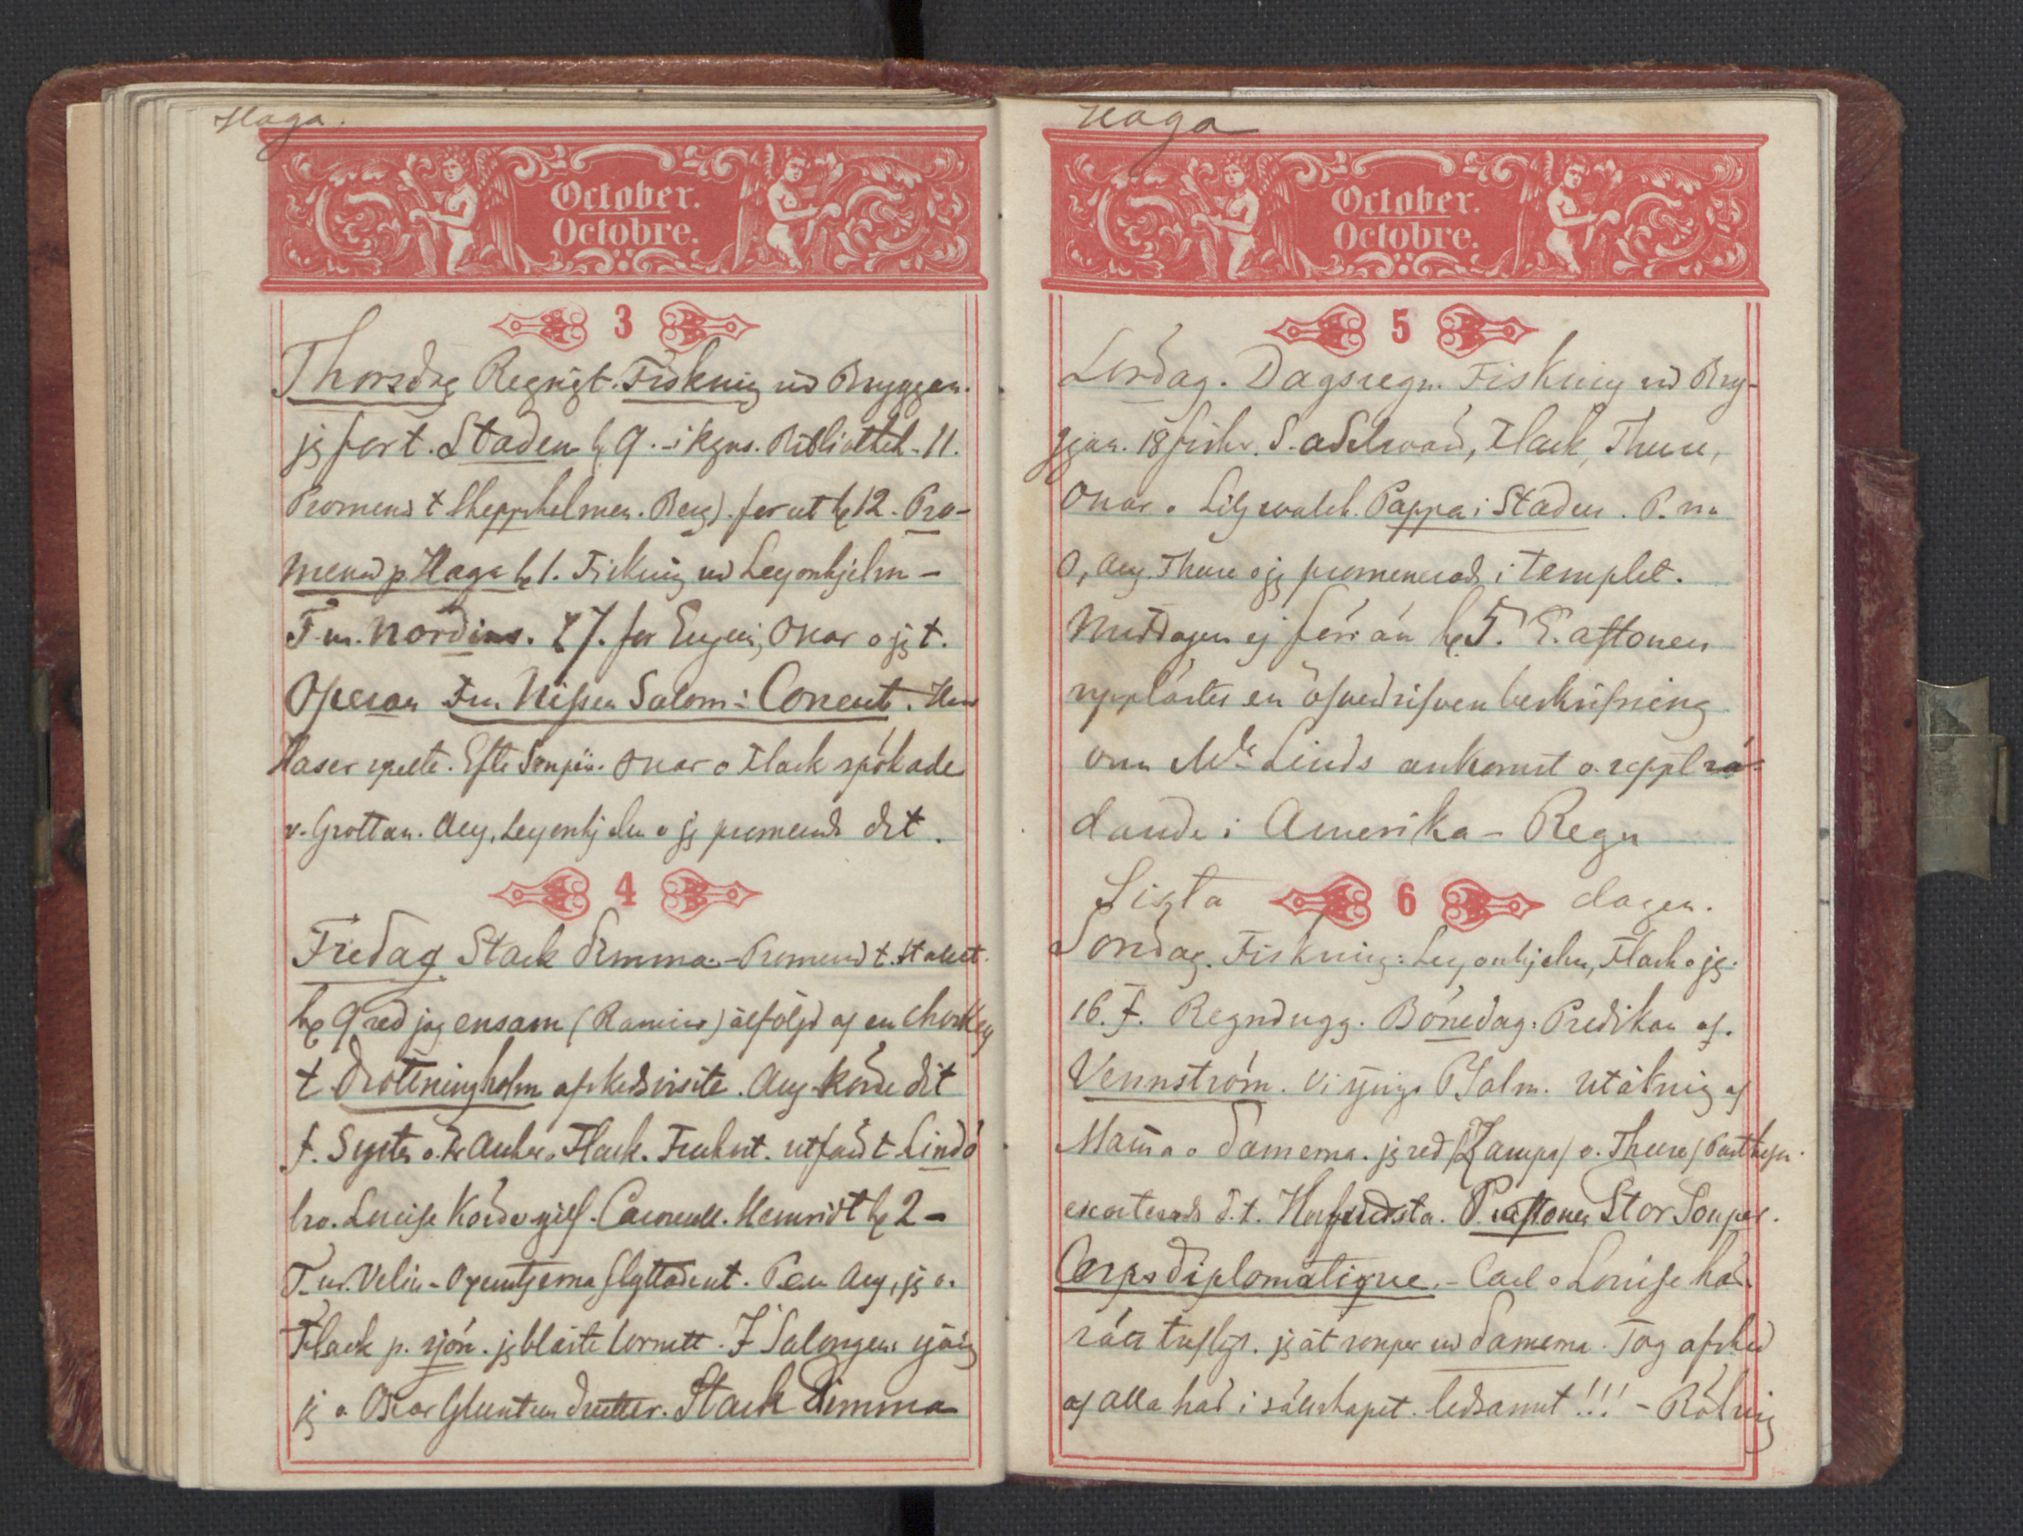 Haga.
October.
Octobre.
3
Thorsdag Regnigt. Fiskning vid Bryggan.
jg for t. Staden kl 9. - i kgns. Bibliothek - 11.
Promend t Skeppsholmen. Berg). for ut kl 12. Pro-
menad p. Haga kl 1. Fiskning vid Leyonhjelm -
F m. Nordins. kl 7. for Eugen, Oscar o jg t.
Operan Fru Nissen Salom: Concert. Herr
Haser spelte. Efter Soupén. Oscar o Flack spökade
v. Grottan. Aug, Leyonhjelm o jg promend dit.
4
Fredag Stark dimma - Promend t. Stallet.
kl 9 red jag ensam (Ramiro) åtföljd af en
t Drottningholm afskedsvisite. Aug körde dit
f. Syster o. Flack. Frukost. utfärd t Lindö
bro. Louise körde sjelf. Hemridt kl 2 -
Oxenstjerna flyttade ut. P.m Aug, jg o.
Flack p. sjön. jg blåste Cornett. I Salongen sjöng
jg o Oscar Gluntens duetter. Stark Dimma
Haga
October.
Octobre.
5
Lördag. Dagsregn. Fiskning vid Bry-
ggan. 18 fiskr. S. Adelsvärd, Flack, Thure,
Oscar o Liljewalch. Pappa i Staden. P. m
O, Aug. Thure o jg promenerade i templet.
Middagen ej förr än kl. 5. E. aftonen
upplästes en öfverdrifven beskrifning
om Mlle Linds ankomst o. uppträ-
dande i Amerika - Regn
Sista 6 dagen.
Söndag. Fiskning: Leyonhjelm, Flack o jg.
16. f. Regndugg. Bönedag: Predikan af.
Vennström. Vi sjöngo Psalm. Utåkning af
Mama o Damerna. jg red (Zampa) o. Thure (
escorterade d. t. Hufvudsta. P. aftonen Stor Souper.
Corps diplomatique. - Carl o Louise här.
rätt trefligt. jg åt souper vid damerna. Tog afsked
af alla här i sällskapet. ledsamt!!! -